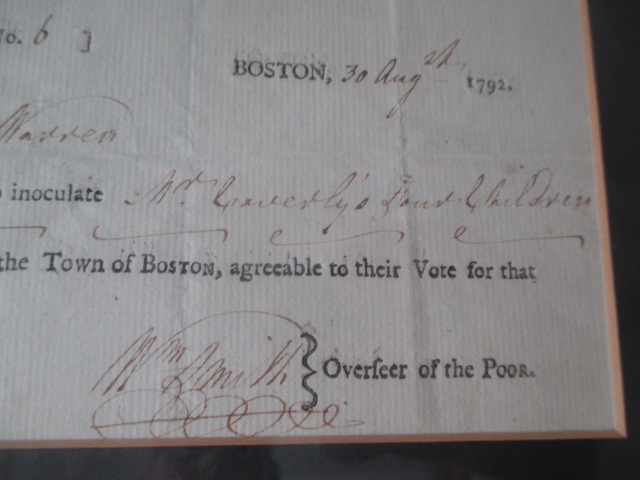 No. 6 ]
BOSTON, 30 Augst 1792.
Warren
o inoculate Mr. Caverly's Four Children
the Town of BOSTON, agreeable to their Vote for that
Wm Smith } Overſeer of the POOR.